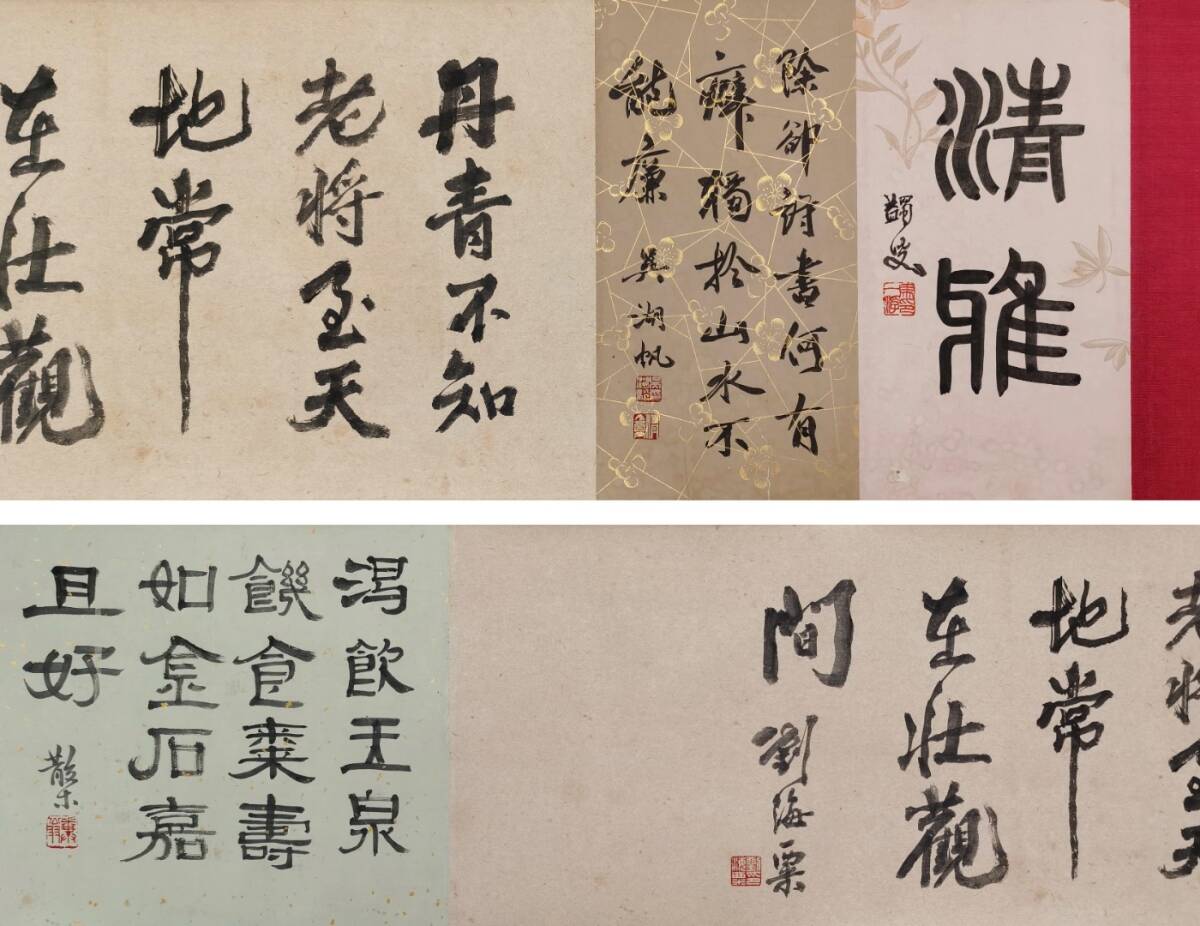 清雅
蠲叟
除卻詩書何有
癖獨於山水不
能廉 吳湖帆
丹青不知
老將至天
地常
在壯觀
老將至天
地常
在壯觀
間 劉海粟
渴飲玉泉
饑食棗壽
如金石嘉
且好 散木